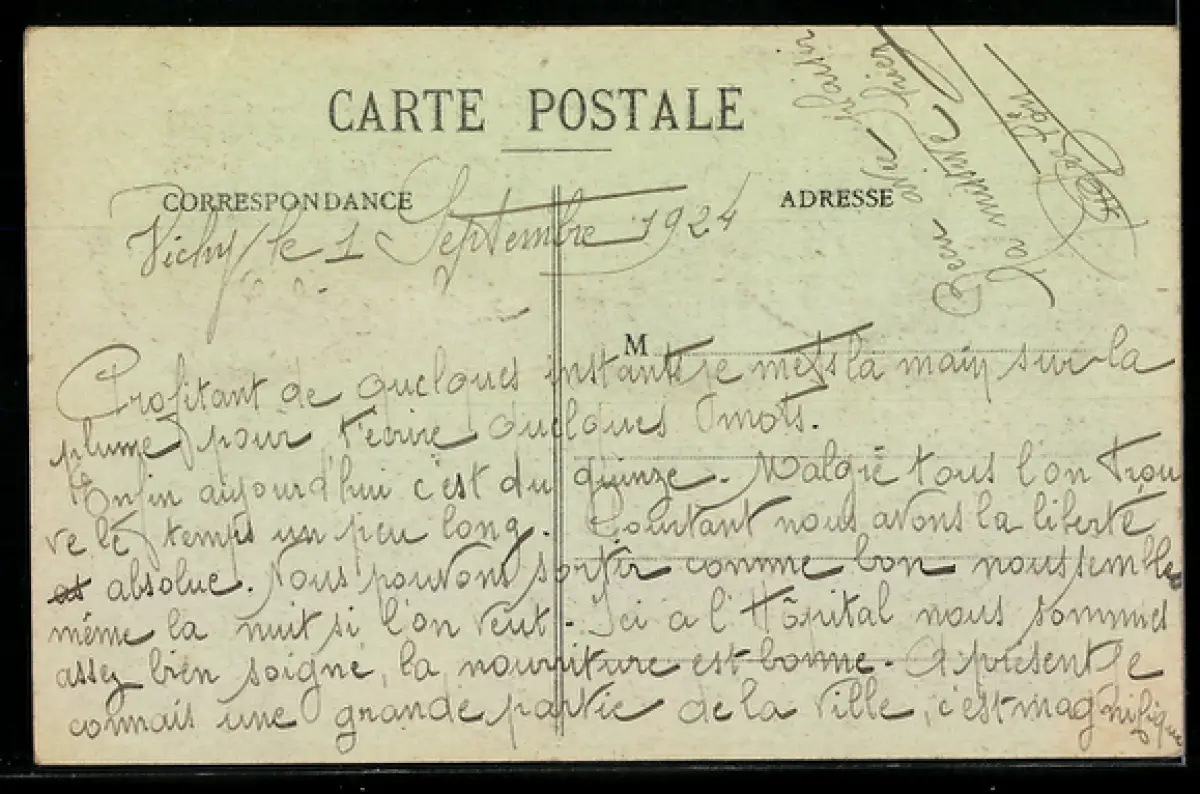 CARTE POSTALE
CORRESPONDANCE
ADRESSE
Vichy le 1 Septembre 1924
M
Profitant de quelques instants je mets la main sur la
plume pour t'écrire quelques mots.
Enfin aujourd'hui c'est du quinze. Malgré tous l'on trou
ve le temps un peu long. Pourtant nous avons la liberté
absolue. Nous pouvons sortir comme bon nous semble
même la nuit si l'on veut. Ici à l'Hôpital nous sommes
assez bien soigné, la nourriture est bonne. A présent je
connais une grande partie de la ville, c'est magnifique